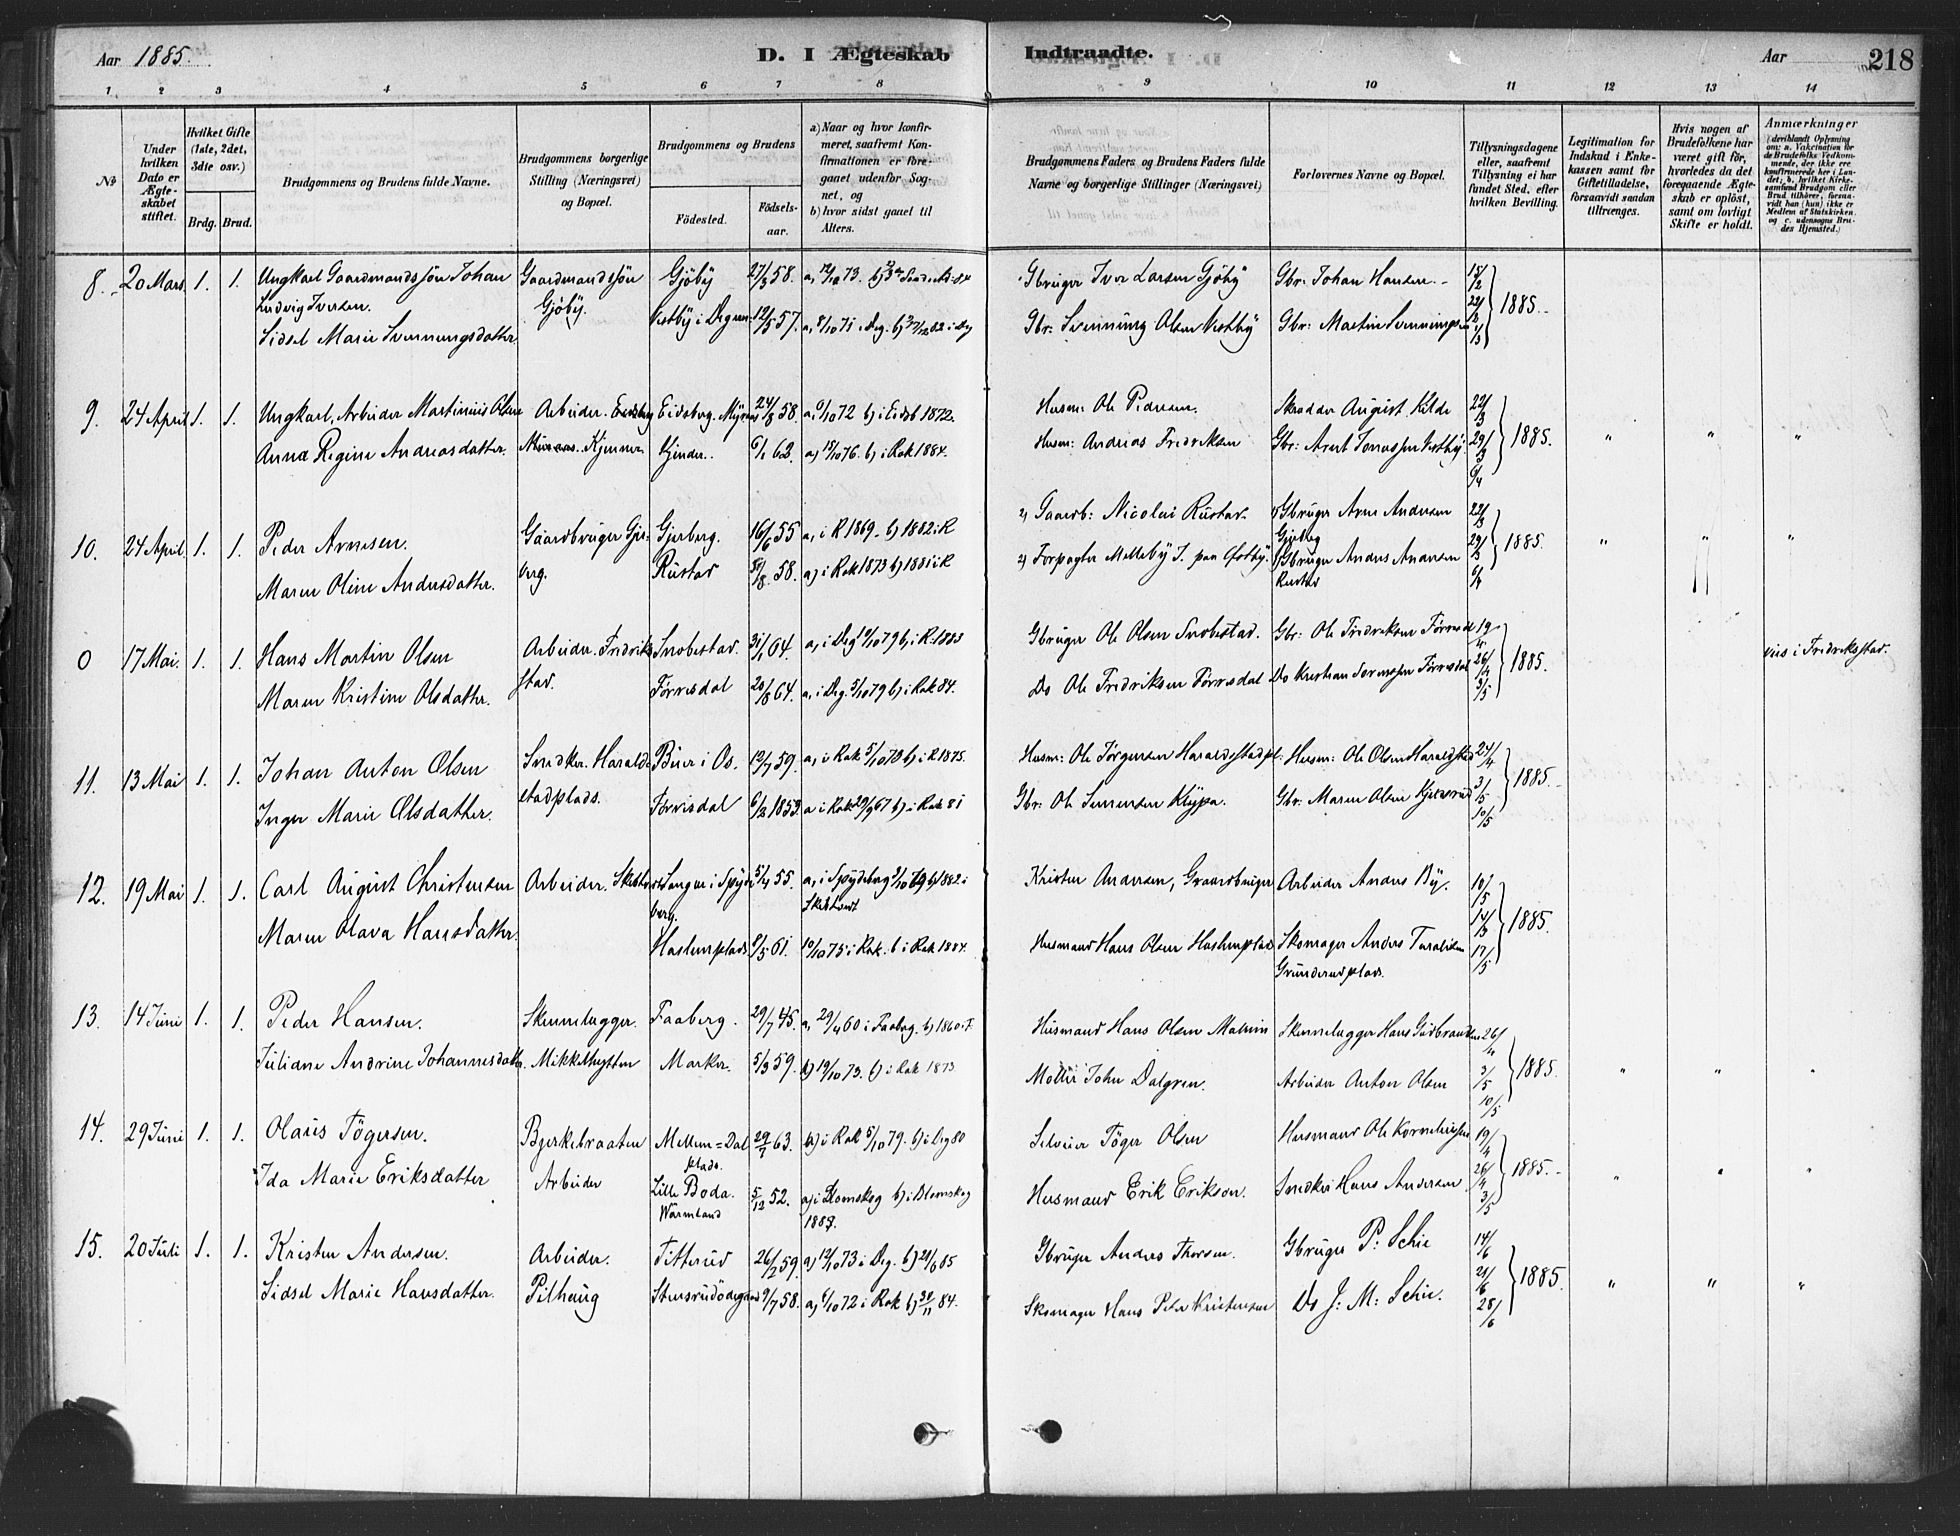 Aar 1885.
D. I Ægteskab
Indtraadte.
Aar
218
1 2 3 4 5 6 7 8 9 10 11 12 13 14
No
Under hvilken Dato er Ægteskabet stiftet.
Hvilket Gifte (1ste, 2det, 3die osv.)
Brdg. Brud.
Brudgommens og Brudens fulde Navne.
Brudgommens borgerlige Stilling (Næringsvei) og Bopæl.
Brudgommens og Brudens
Födested.
Födsels-aar.
a) Naar og hvor konfirmeret, saafremt Konfirmationen er foregaaet udenför Sognet, og
b) hvor sidst gaaet til Alters.
Brudgommens Faders og Brudens Faders fulde Navne og borgerlige Stillinger (Næringsvei)
Forlovernes Navne og Bopæl.
Tillysningsdagene eller, saafremt Tillysning ei har fundet Sted, efter hvilken Bevilling.
Legitimation for Indskud i Enkekassen samt for Giftetilladelse, forsaavidt saadan tiltrænges.
Hvis nogen af Brudefolkene har været gift för, hvorledes da det foregaaende Ægteskab er oplöst, samt om lovligt Skifte er holdt.
Anmærkninger
8. 20 Mars 1. 1. Ungkarl Gaardmandssön Johan Ludvig Iversen. Gaardmandssön Gjöby. Gjöby 27/3 58. Gbruger Iver Larsen Gjöby Gbr: Johan Hansen 15/2 22/2 1/3 1885.
Sidsel Marie Svenningsdatter Vestby i Degernes 12/5 57. a, 8/10 71 i Deg. b) 27/12 82 i Deg Gbr. Svenning Olsen Vestby Gbr: Martin Svenningsen
9. 24 April 1. 1. Ungkarl, Arbeider Martinius Olsen Arbeider. Eidsberg Eidsberg. Myrnas 24/8 58. a, 6/10 72 b) i Eidsb 1872. Husm: Ole Pedersen. Skrædder August Kilde 22/3 29/3 6/4 1885. " " "
Anna Regine Andreasdatter. Kjenner 6/1 62. a) 15/10 76. b) i Rak 1884. Husm: Andreas Fredriksen Gbr: Arent Vestby.
10. 24 April 1. 1. Peder Arnesen. Gaardbruger Gjerberg. Gjerberg. 16/6 55 a, i R 1869. b) 1882 i R 2) Gaardb: Nicolai Rustad. Gbruger Arne Andersen Gjerberg 22/3 29/3 6/4 1885. " " "
Maren Oline Andersdatter. Rustad 58. a) i Rak 1873 b) 1881 i R 2) Forpagter Melleby S. paa Östby. Gbruger Anders Andersen Rustad
0 17 Mai. 1. 1. Hans Martin Olsen Arbeider. Fredrikstad. Snobestad. 31/1 64. a, i Deg 19/10 79 b, i R. 1883 Gbruger Ole Olsen Snobestad. Gbr: Ole Fredriksen Törrisdal 19/4 26/4 3/5 1885. viis i Fredriksstad.
Maren Kristine Olsdatter. Törrisdal 20/8 64. a, i Deg. 5/10 79 b, i Rak 84. Do Ole Fredriksen Törrisdal Do Kristian Sorensen Törrisdal
11. 13 Mai 1. 1. Johan Anton Olsen Snedker. Haraldstadplads. Buer i Os. 12/7 59. a, i Rak 5/10 73 b, i R 1875. Husm: Ole Jörgensen Haraldstadpl. Husm: Ole Olsen Haraldstad 24/4 3/5 10/5 1885.
Inger Marie Olsdatter. Törrisdal 6/2 1853 a i Rak 29/9 67 b) i Rak 81 Gbr: Ole Sörensen Klypa. Gbr. Maren Olsen
12. 19 Mai 1. 1. Carl August Christensen Arbeider. i Spydeberg. 5/4 55. a, i Spydeberg 3/10 69 b) 1882 i Skiptvedt Kristen Andersen, Graardbruger Arbeider Anders By. 10/5 14/5 17/5 1885.
Maren Olava Hansdatter. Haslemplads 9/5 61. 10/10 75 i Rak. b i Rak 1884. Husmand Hans Olsen Haslemplads Skomager Anders Taraldsen Grunderudplads.
13. 14 Juni 1. 1. Peder Hansen. Skinnelægger. Faaberg. 29/7 45. a, 29/4 60 i Faaberg. b) 1860 i F. Husmand Hans Olsen Skinnelægger Hans Gudbrandsen 26/4 3/5 10/5 1885. " " "
Juliane Andrine Johannesdatter. Mikkelhytten Marker. 5/3 59. b) 12/10 73. b) i Rak 1873 Möller John Dalgren. Arbeider Anton Olsen
14. 29 Juni 1. 1. Olaus Tögersen. Bjerkebraaten Arbeider Mellem=Dalplads. 29/7 63. a) i Rak 5/10 79. b) i Deg 80 Selveier Töger Olsen Husmand Ole Korneliussen 19/4 26/4 3/5 1885. " " "
Ida Marie Eriksdatter Lille Boda. Wärmland 5/12 52. a) i Blomskog b) i Blomskog 1883. Husmand Erik Erikson. Snedker Hans Andersen
15. 20 Juli 1. 1. Kristen Andersen. Arbeider. Pilhaug Titterud 26/2 59. a) 12/10 73 i Deg. b) 21/6 85 Gbruger Andreas Thorsen. Gbruger P: Schie 14/6 21/6 28/6 1885. " " "
Sidsel Marie Hansdatter. Stensrudödegaard 9/7 58. a, 6/10 72 i Rak b) 30/11 84. Skomager Hans Peter Kristensen Do J: M: Schie.